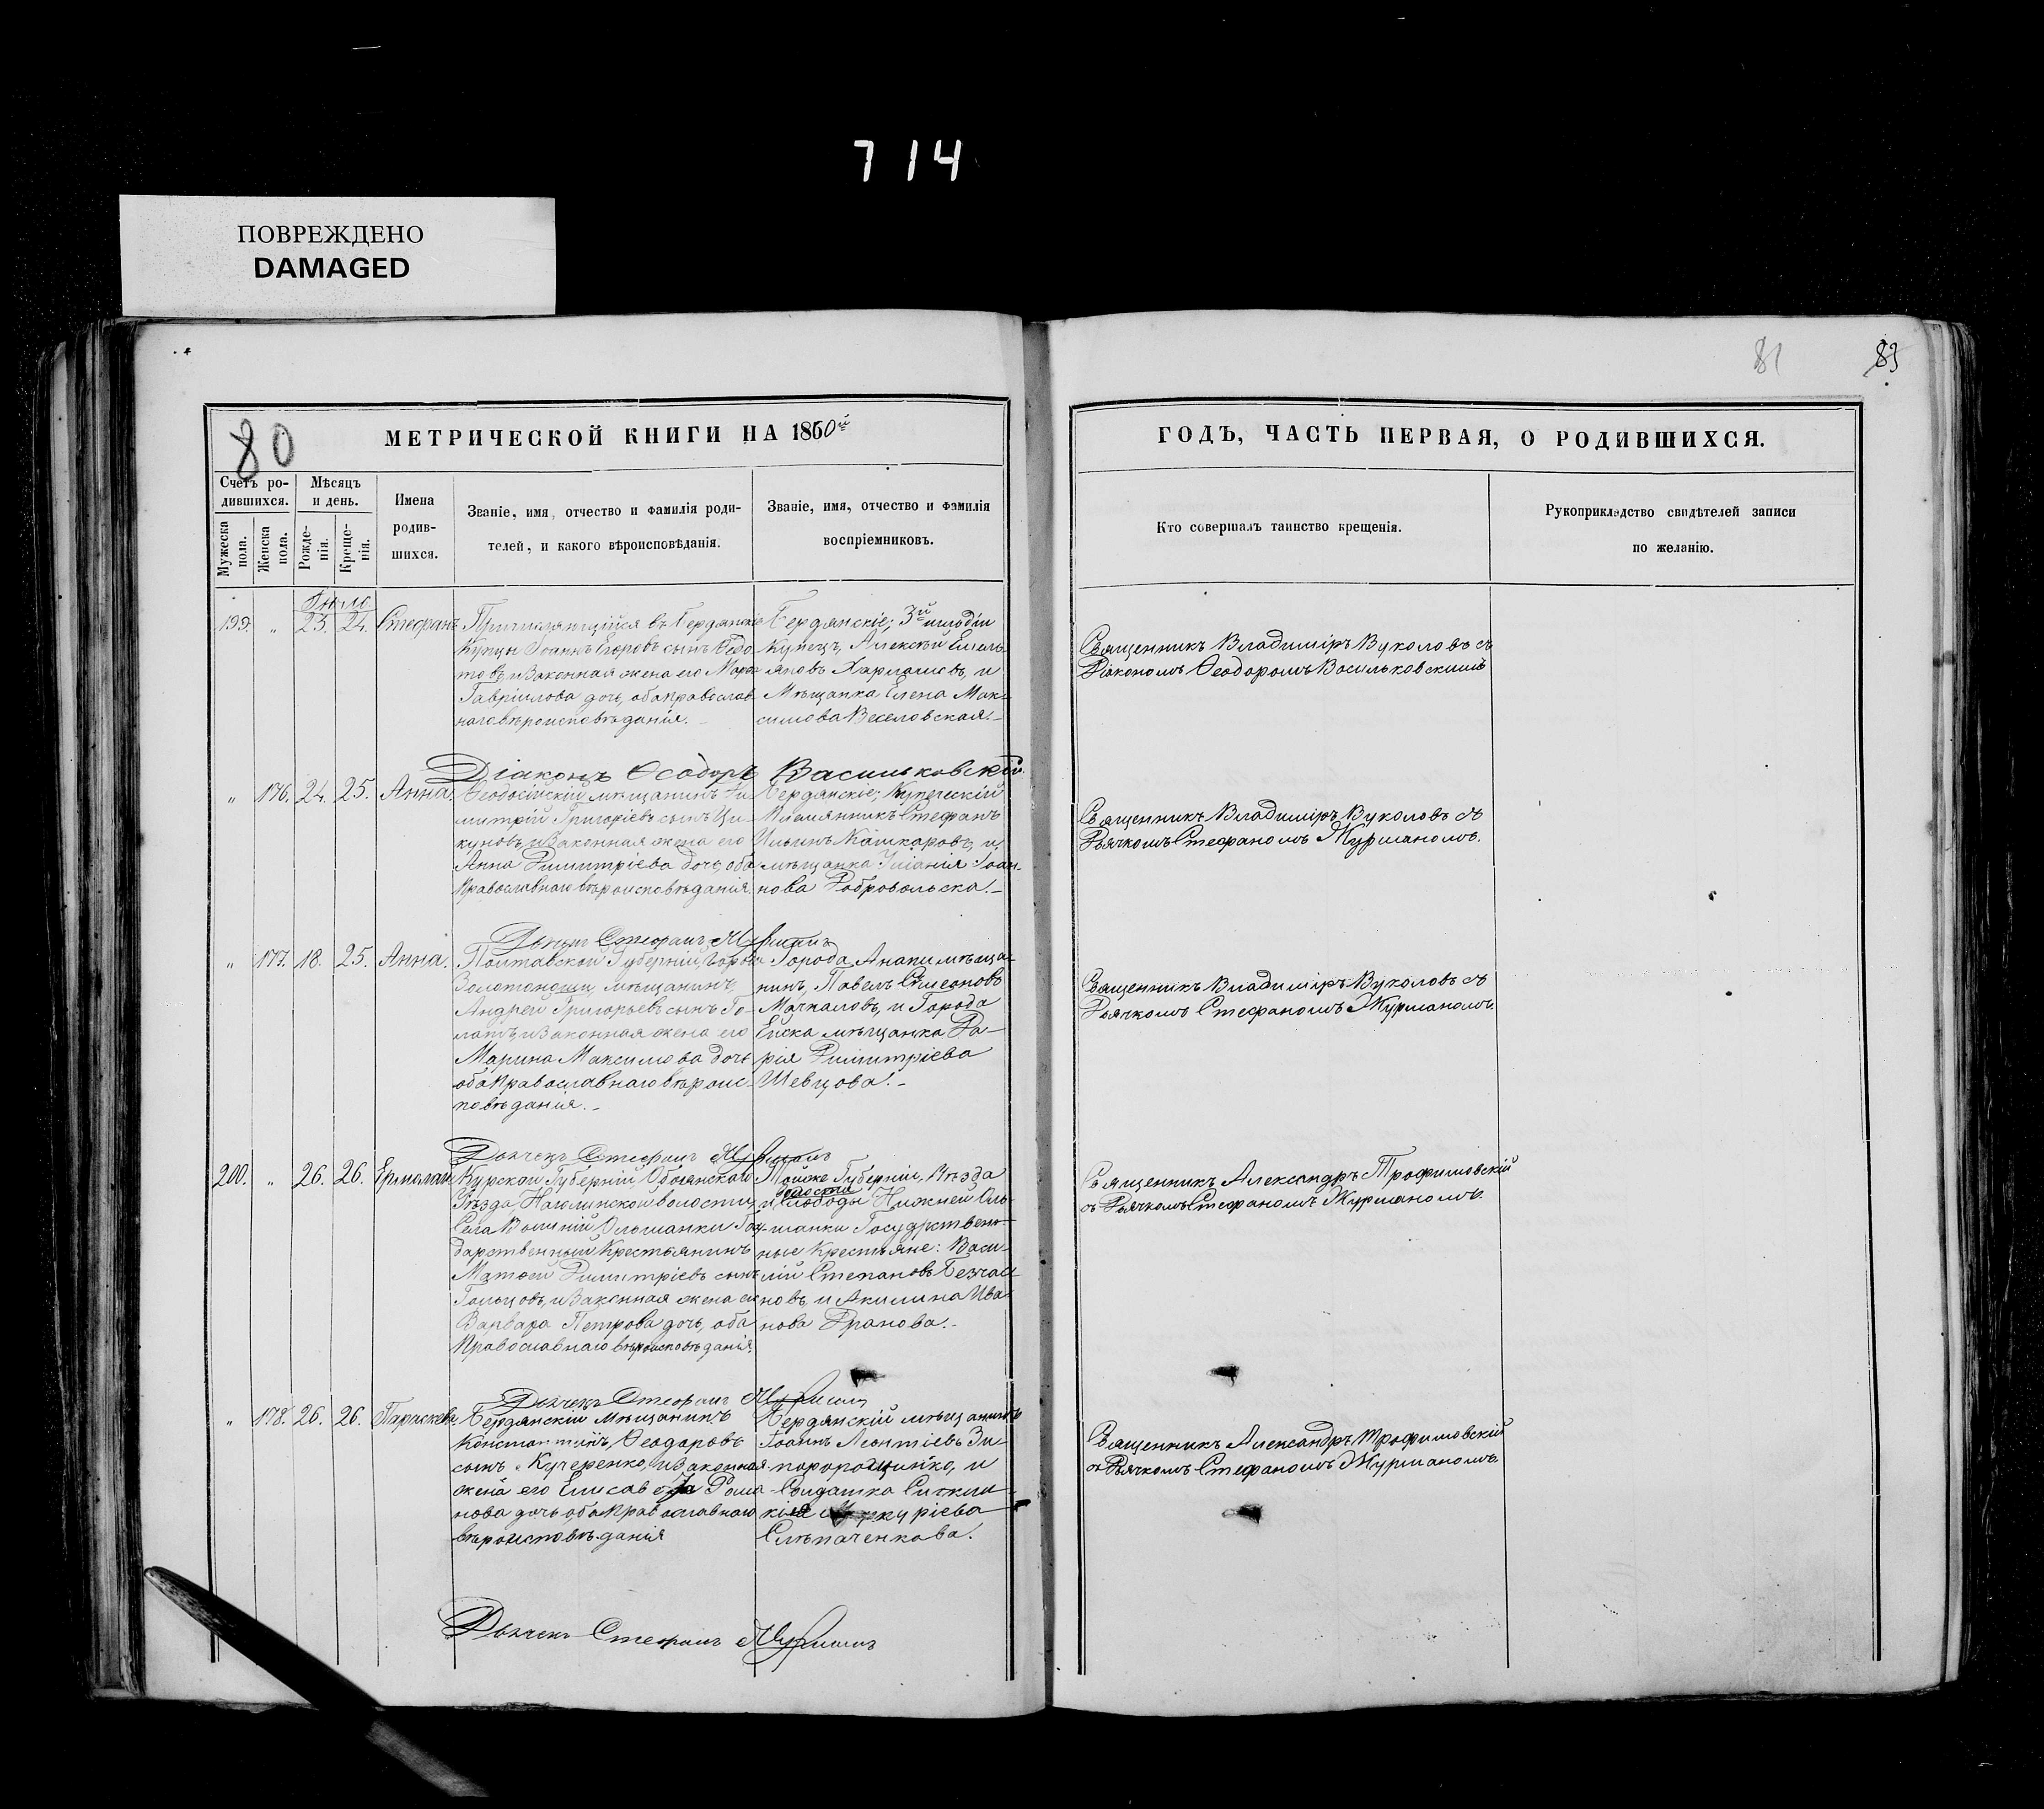 714
ПОВРЕЖДЕНО
DAMAGED
81
83
80
МЕТРИЧЕСКОЙ КНИГИ НА 1860й
ГОДЪ, ЧАСТЬ ПЕРВАЯ, О РОДИВШИХСЯ.
Счетъ ро-
дившихся.
Мѣсяцъ
и день.
Мужеска
пола.
Женска
пола.
Рожде-
нія.
Креще-
нія.
Имена
родив-
шихся.
Званіе, имя, отчество и фамилія роди-
телей, и какого вѣроисповѣданія.
Званіе, имя, отчество и фамилія
воспріемниковъ.
Кто совершалъ таинство крещенія.
Рукоприкладство свидѣтелей записи
по желанію.
199. „ 23. 24. Стефанъ
въ Бердянскіе
Купцы Іоаннъ Егоровъ сынъ
законная жена его
Гавріилова дочь, оба православ
наго вѣроисповѣданія.
Бердянскіе; 3й гильдіи
Купецъ, Алексѣй Емель-
яновъ Харламовъ, и
Мѣщанка Елена Мак-
симова Веселовская.
Священникъ Владиміръ Вуколовъ съ
Діакономъ Ѳеодоромъ Васильковскимъ
Діаконъ Ѳеодоръ Васильковскій
„ 176. 24. 25. Анна.
Ѳеодосійскій мѣщанинъ Ди-
митрій Григоріевъ сынъ Ци-
куновъ, и законная жена его
Анна Димитріева дочь, оба
православнаго вѣроисповѣданія.
Бердянскіе; Купеческій
Племянникъ Стефанъ
Ильинъ Кашкаровъ, и
мѣщанка Іоан-
нова Добровольска.
Священникъ Владиміръ Вуколовъ съ
Дьячкомъ Стефаномъ Журманомъ.
Дьячекъ Стефанъ Журманъ
„ 177. 18. 25. Анна.
Полтавской Губерніи, города
Золотоноши, мѣщанинъ,
Андрей Григорьевъ сынъ Го-
латъ, и законная жена его
Марина Максимова дочь
оба православнаго вѣроис-
повѣданія.
Города Анапи мѣща-
нинъ, Павелъ Симеоновъ
Мачкаловъ, и Города
Ейска мѣщанка Да-
рія Димитріева
Шевцова.
Священникъ Владиміръ Вуколовъ съ
Дьячкомъ Стефаномъ Журманомъ.
Дьячекъ Стефанъ Журманъ
200. „ 26. 26. Ермолай
Курской Губерніи Обоянского
Уѣзда, волости,
Села Ольшанки Госу-
дарственный Крестьянинъ
Матѳей Димитріевъ сынъ
Гольцовъ, и законная жена его
Варвара Петрова дочь, оба
православнаго вѣроисповѣданія.
Тойже Губерніи, Уѣзда
волости
и Слободы Нижней Оль-
шанки Государствен-
ные Крестьяне: Васи-
лій Степановъ
новъ, и Акилина Ива-
нова Дранова.
Священникъ Александръ Трофимовскій
съ Дьячкомъ Стефаномъ Журманомъ.
Дьячекъ Стефанъ Журманъ
„ 178. 26. 26. Параскева.
Бердянскій мѣщанинъ
Константинъ Ѳеодоровъ
сынъ Кучеренко, и законная
жена его Елисавета Рома-
нова дочь, оба православнаго
вѣроисповѣданія
Бердянскій мѣщанинъ
Іоаннъ Леонтіевъ За-
поророщинко, и
Солдатка
Слѣпаченкова.
Священникъ Александръ Трофимовскій
съ Дьячкомъ Стефаномъ Журманомъ.
Дьячекъ Стефанъ Журманъ